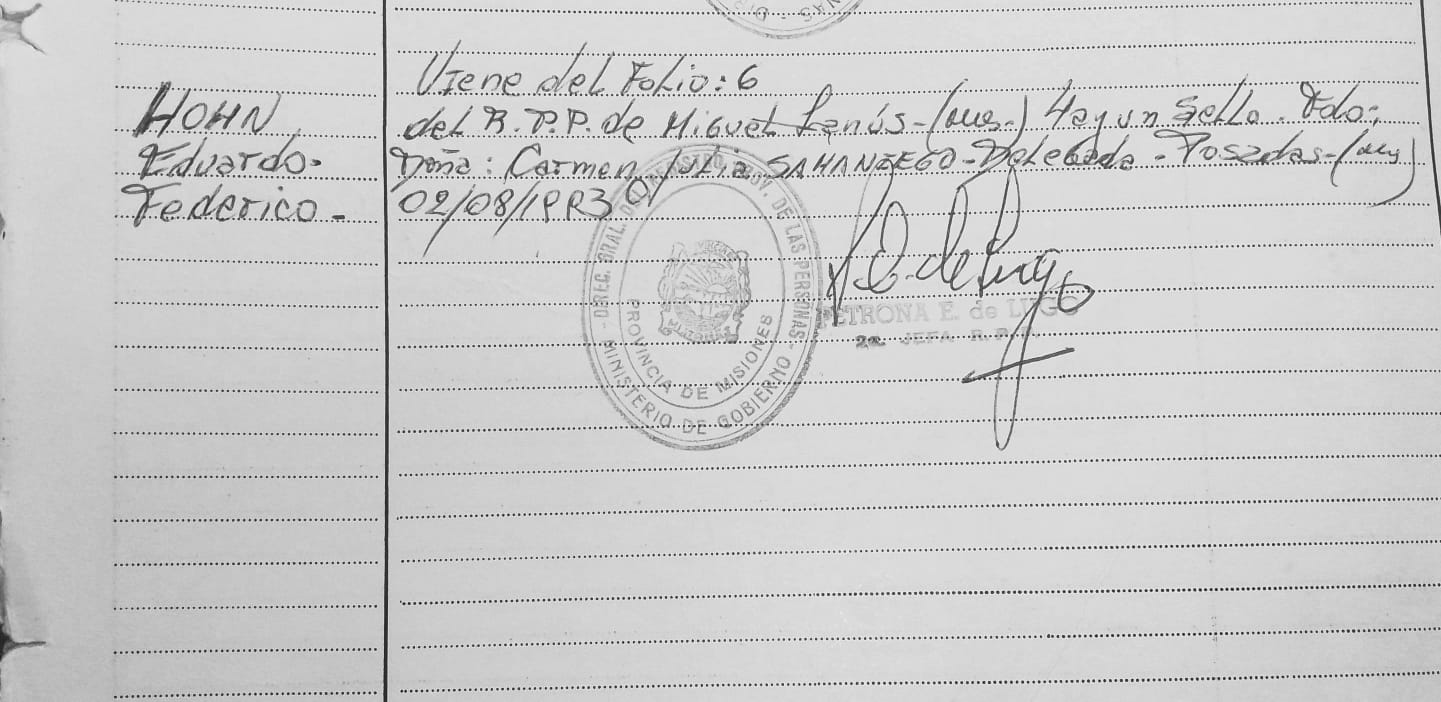 NAS - DI
Viene del Folio: 6
HOHN,
del R.P.P. de Miguel Lanús-(Mns.) Hay un Sello. Fdo:
Eduardo-
Doña: Carmen Julia SAMANIEGO-Delegada-Posadas-(Mns)
Federico-
02/08/1983
DIREC. GRAL. DE PROV. DE LAS PERSONAS
PROVINCIA DE MISIONES
MINISTERIO DE GOBIERNO
PETRONA E. de LUGO
2a. JEFA R.P.P.